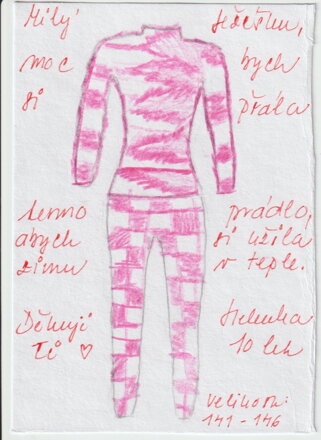 Milý Ježíšku,
moc bych
si přála
termo prádlo,
abych si užila
zimu v teple.
Děkuji Helenka
Ti ♡ 10 let
velikost:
141 - 146